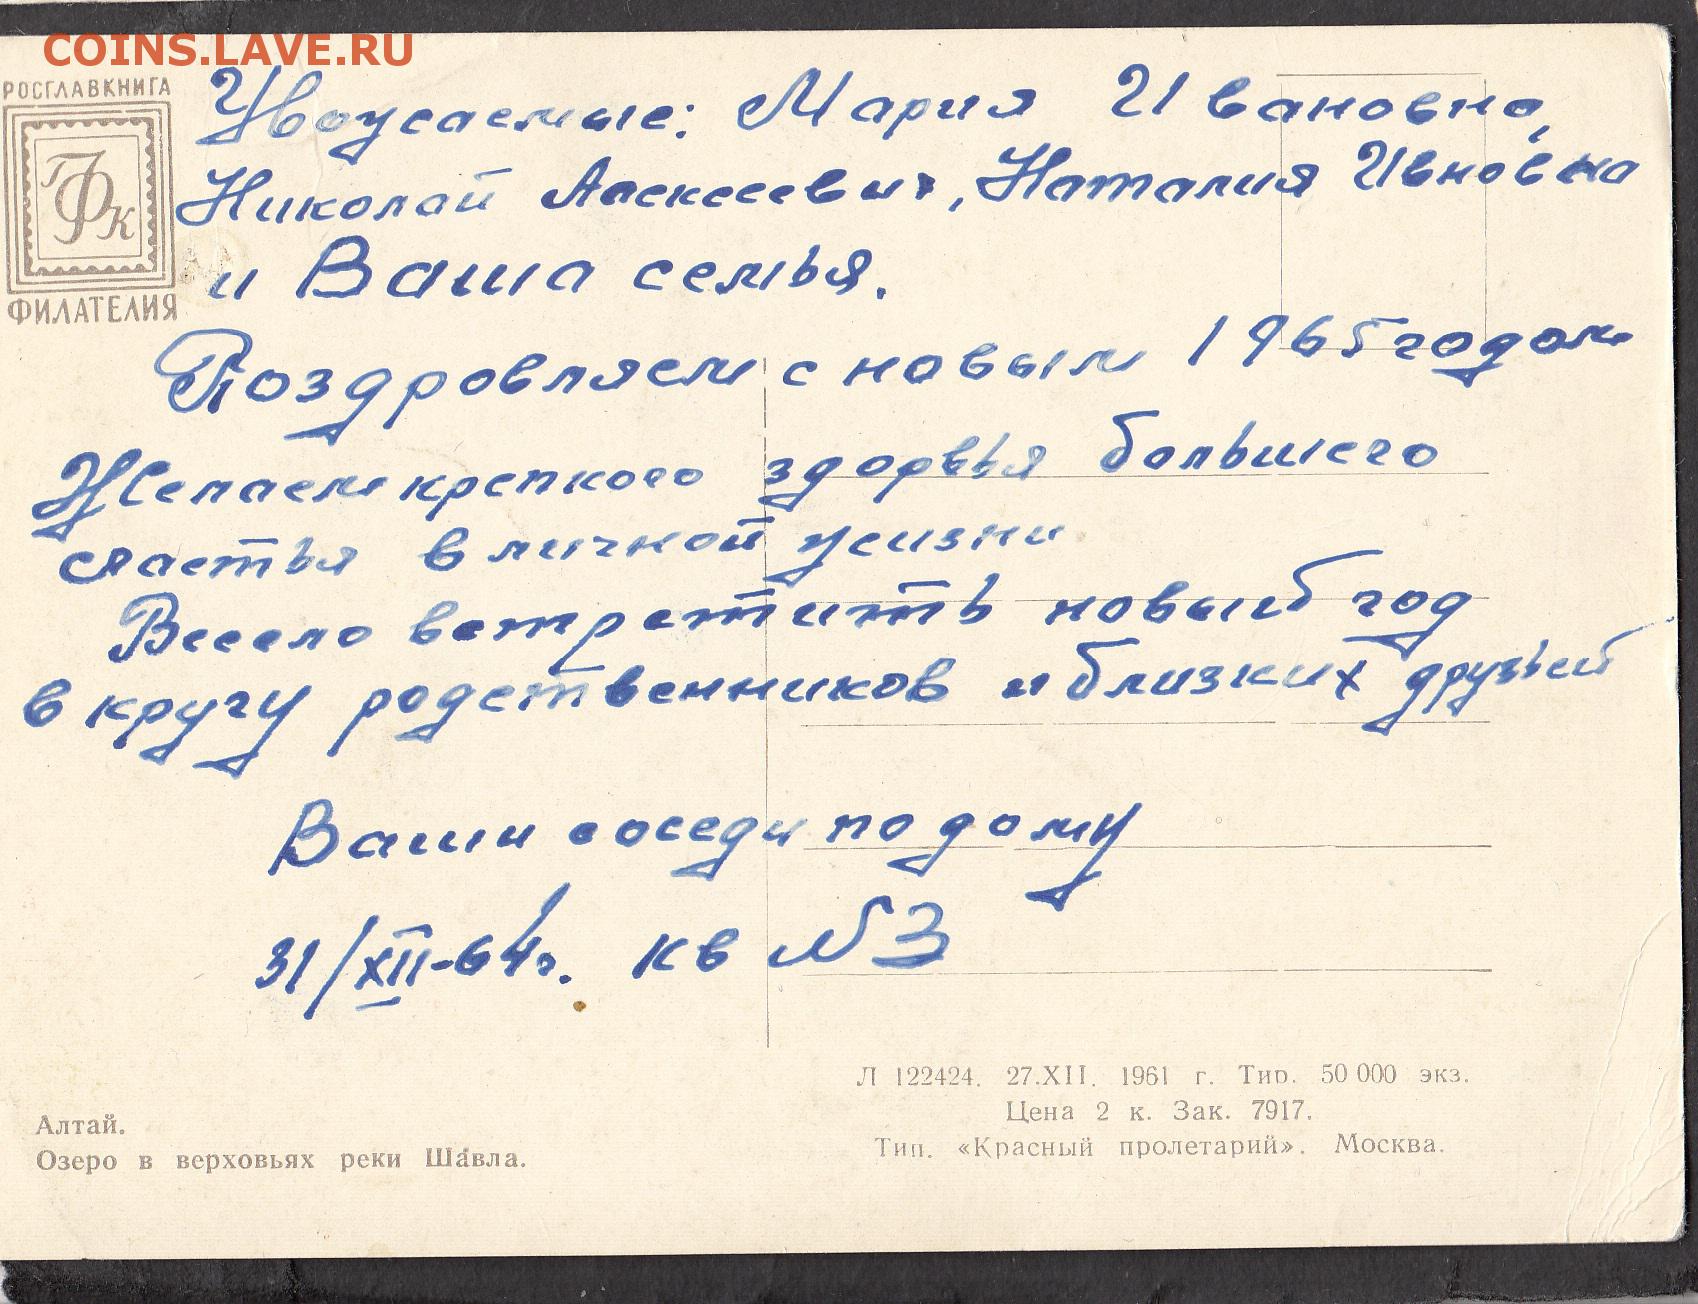 COINS.LAVE.RU
РОСГЛАВКНИГА
ГФК
ФИЛАТЕЛИЯ
Увоусаемые: Мария Ивановна,
Николай Алексеевич, Наталия Ивновна
и Ваша семья.
Поздровляем с новым 1965 годом
Желаем крепкого здорвья большего
счастья в личной жизни
Весело встретить новый год
в кругу родственников и близких друзьей
Ваши соседи по дому
31/XII-64г. кв № 3
Л 122424. 27.XII. 1961 г. Тир. 50 000 экз.
Цена 2 к. Зак. 7917.
Тип. «Красный пролетарий». Москва.
Алтай.
Озеро в верховьях реки Ша́вла.